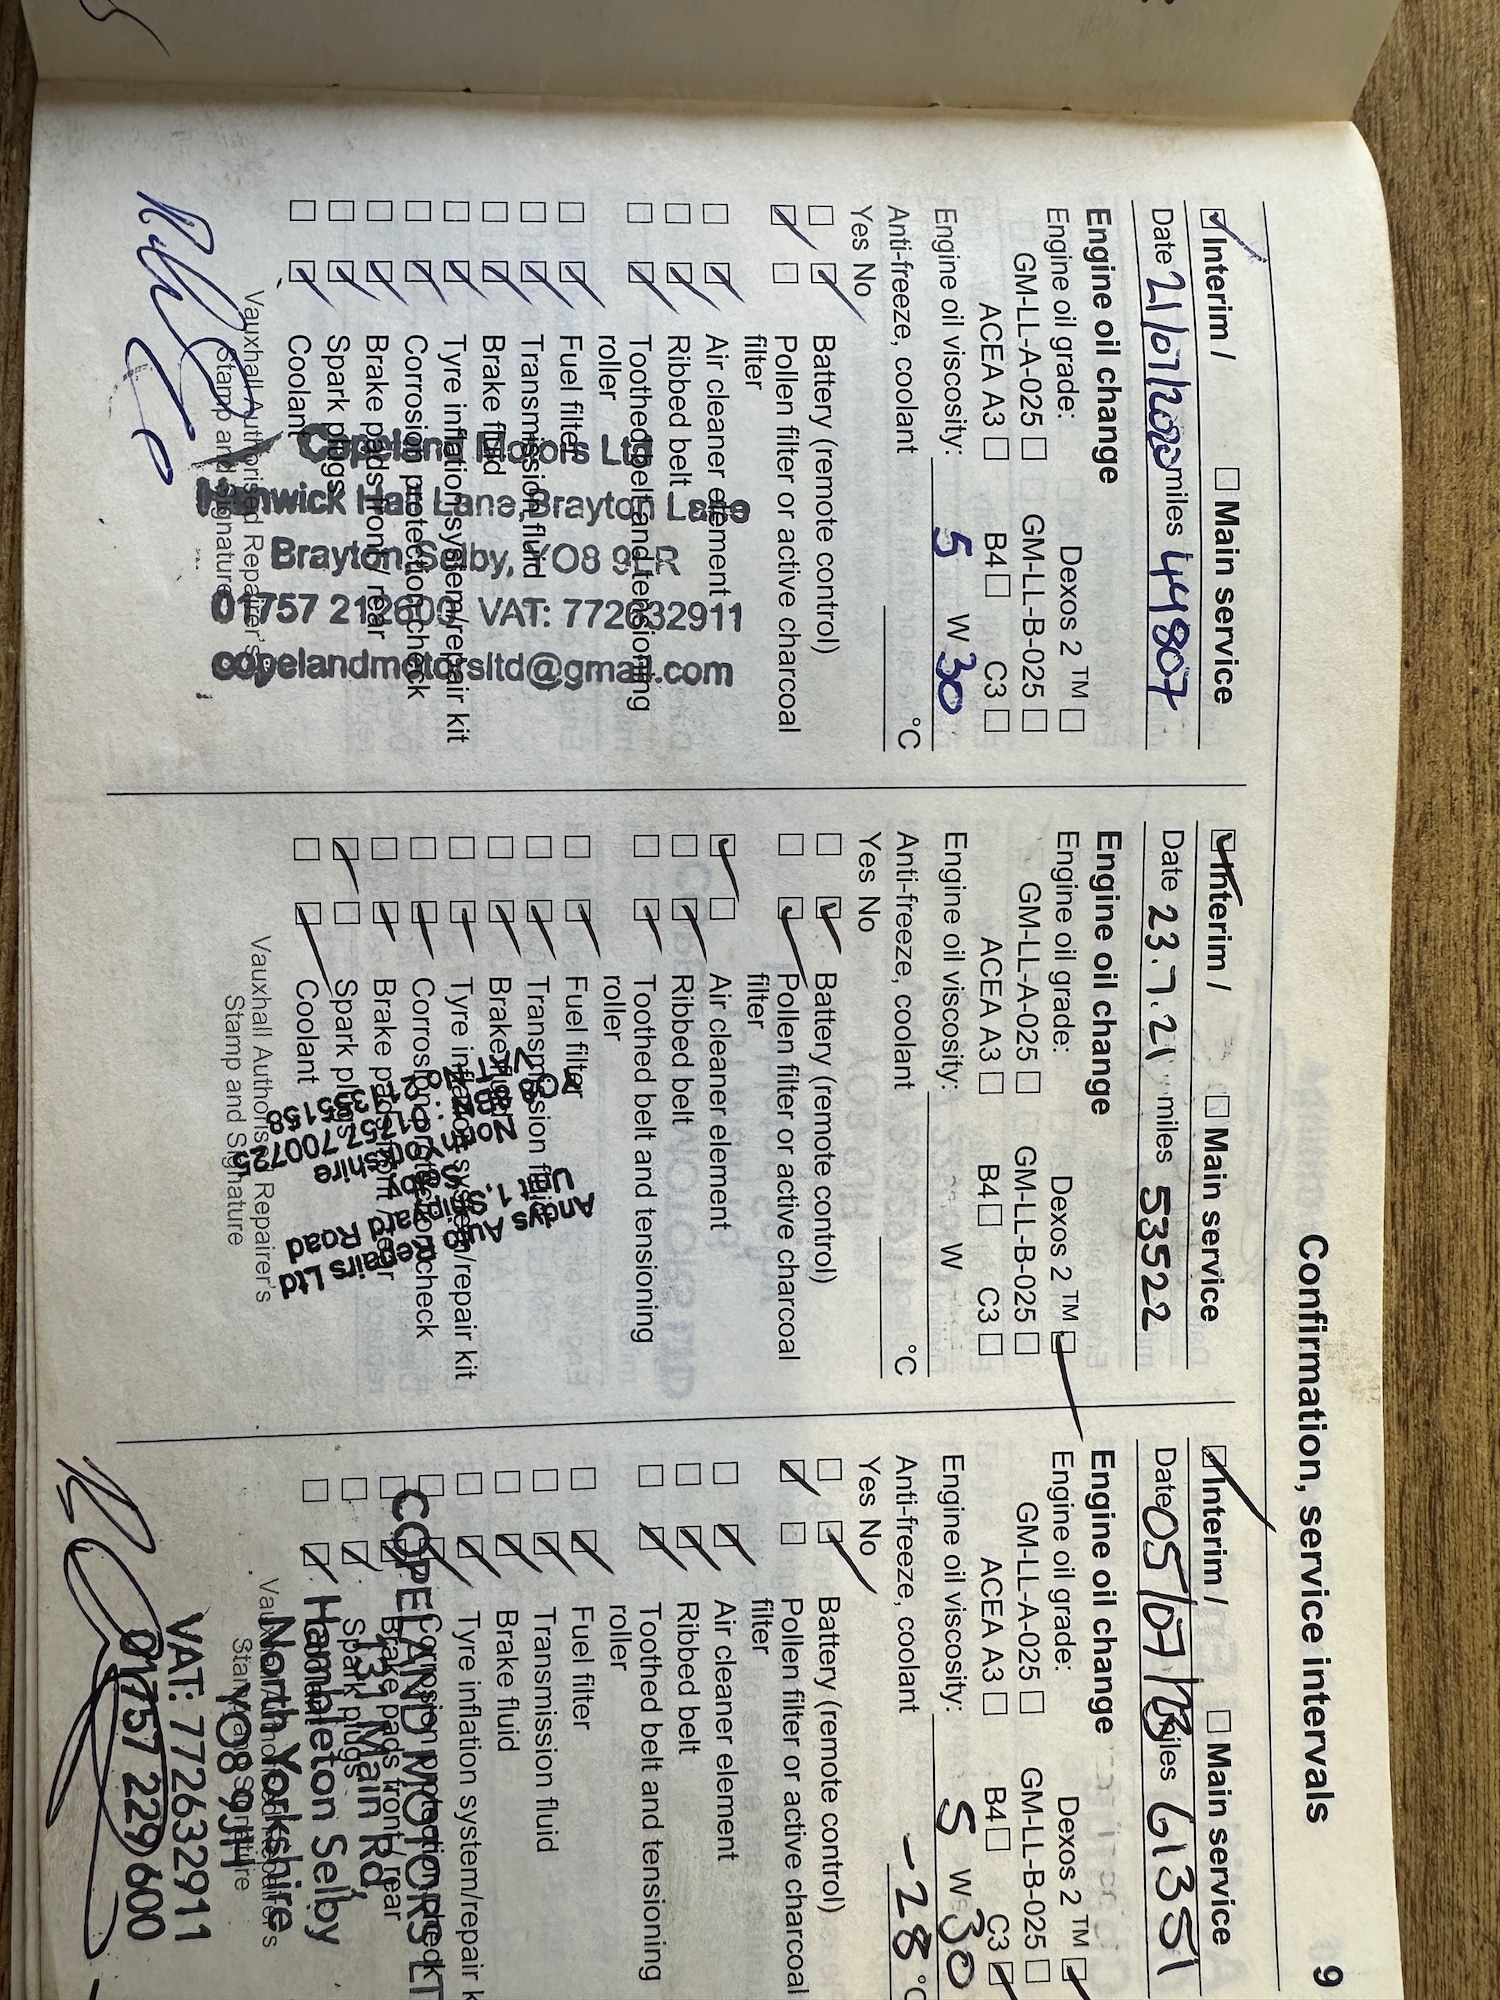 Confirmation, service intervals 9
Interim / Main service
Date 21/07/2020 miles 44807
Engine oil change
Engine oil grade: Dexos 2 ™
GM-LL-A-025 GM-LL-B-025
ACEA A3 B4 C3
Engine oil viscosity: 5 W 30
Anti-freeze, coolant °C
Yes No
Battery (remote control)
Pollen filter or active charcoal
filter
Air cleaner element
Ribbed belt
Toothed belt and tensioning
roller
Fuel filter
Transmission fluid
Brake fluid
Tyre inflation system/repair kit
Corrosion protection check
Brake pads front / rear
Spark plugs
Coolant
Vauxhall Authorised Repairer's
Stamp and Signature
Copeland Motors Ltd
Lane, Brayton
Brayton, Selby, YO8
01757 212600 VAT: 772632911
copelandmotorsltd@gmail.com
Interim / Main service
Date 23.7.21 miles 53522
Engine oil change
Engine oil grade: Dexos 2 ™
GM-LL-A-025 GM-LL-B-025
ACEA A3 B4 C3
Engine oil viscosity: W
Anti-freeze, coolant °C
Yes No
Battery (remote control)
Pollen filter or active charcoal
filter
Air cleaner element
Ribbed belt
Toothed belt and tensioning
roller
Fuel filter
Transmission fluid
Brake fluid
Tyre inflation system/repair kit
Corrosion protection check
Brake pads front / rear
Spark plugs
Coolant
Vauxhall Authorised Repairer's
Stamp and Signature
Andys Auto Repairs Ltd
Unit 1, Shipyard Road
Selby
Interim / Main service
Date 05/07/23 miles 61351
Engine oil change
Engine oil grade: Dexos 2 ™
GM-LL-A-025 GM-LL-B-025
ACEA A3 B4 C3
Engine oil viscosity: 5 W 30
Anti-freeze, coolant -28 °C
Yes No
Battery (remote control)
Pollen filter or active charcoal
filter
Air cleaner element
Ribbed belt
Toothed belt and tensioning
roller
Fuel filter
Transmission fluid
Brake fluid
Tyre inflation system/repair k
Corrosion protection check
Brake pads front / rear
Spark plugs
Coolant
Stamp and Signature
COPELAND MOTORS LT
131 Main Rd,
Hambleton Selby
North Yorkshire
YO8 9JH
VAT: 772632911
01757 229600